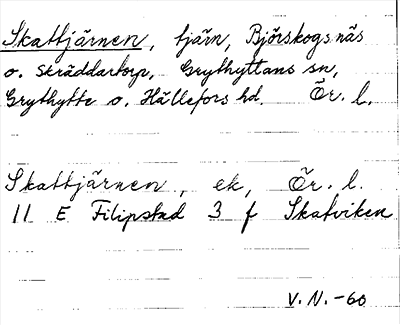 Skattjärnen, tjärn, Björskogsnäs
o. Skräddartorp, Grythyttans sn,
Grythytte o. Hällefors hd. Ör. l.
Skattjärnen, ek, Ör. l.
11 E Filipstad 3 f Skatviken
V. N. -60